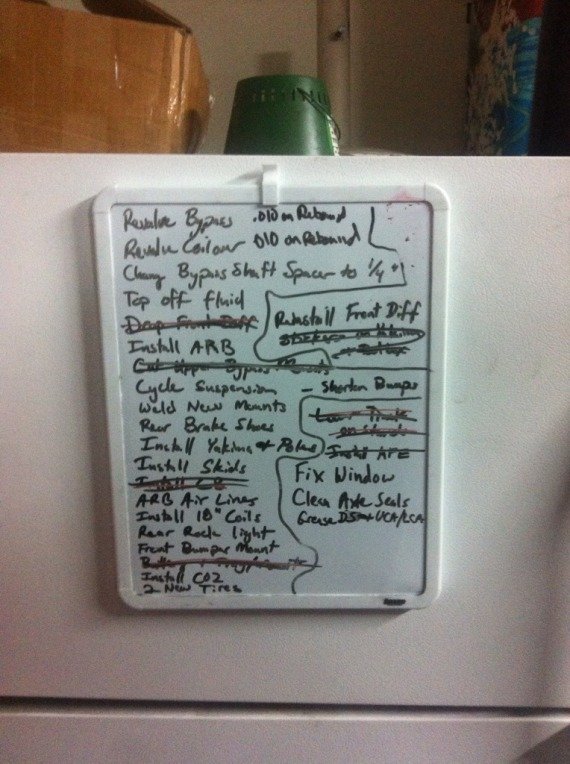 Revalve Bypass .010 on Rebound
Revalve Coilover .010 on Rebound
Change Bypass Shaft Spacer to 1/4"
Top off fluid
Drop Front Diff
Install ARB
Cut Upper Bypass
Cycle Suspension
Weld New Mounts
Rear Brake Shoes
Install Yakima + Poles
Install Skids
Install CB
ARB Air Lines
Install 18" Coils
Rear Rock Light
Front Bumper Mount
Install CO2
2 New Tires
Reinstall Front Diff
- Shorten Bumper
Fix Window
Clean Axle Seals
Grease DS + UCA/LCA